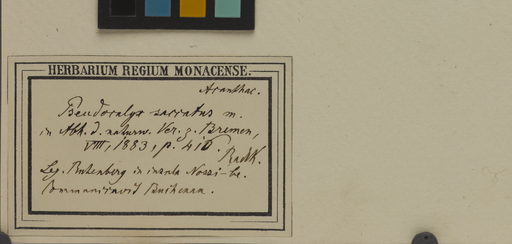 HERBARIUM REGIUM MONACENSE.
Acanthac.
Pseudocalyx saccatus m.
in Abh. d. naturw. Ver. z. Bremen,
VIII, 1883, p. 416.
Radlk.
Leg. Rutenberg in insula Nossi-be.
Communicavit Buchenau.